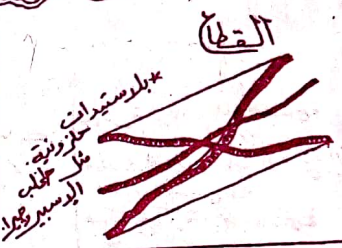 القطاع
* بلاستيدات
حلزونية
مثل طحلب
السبيروجيرا.